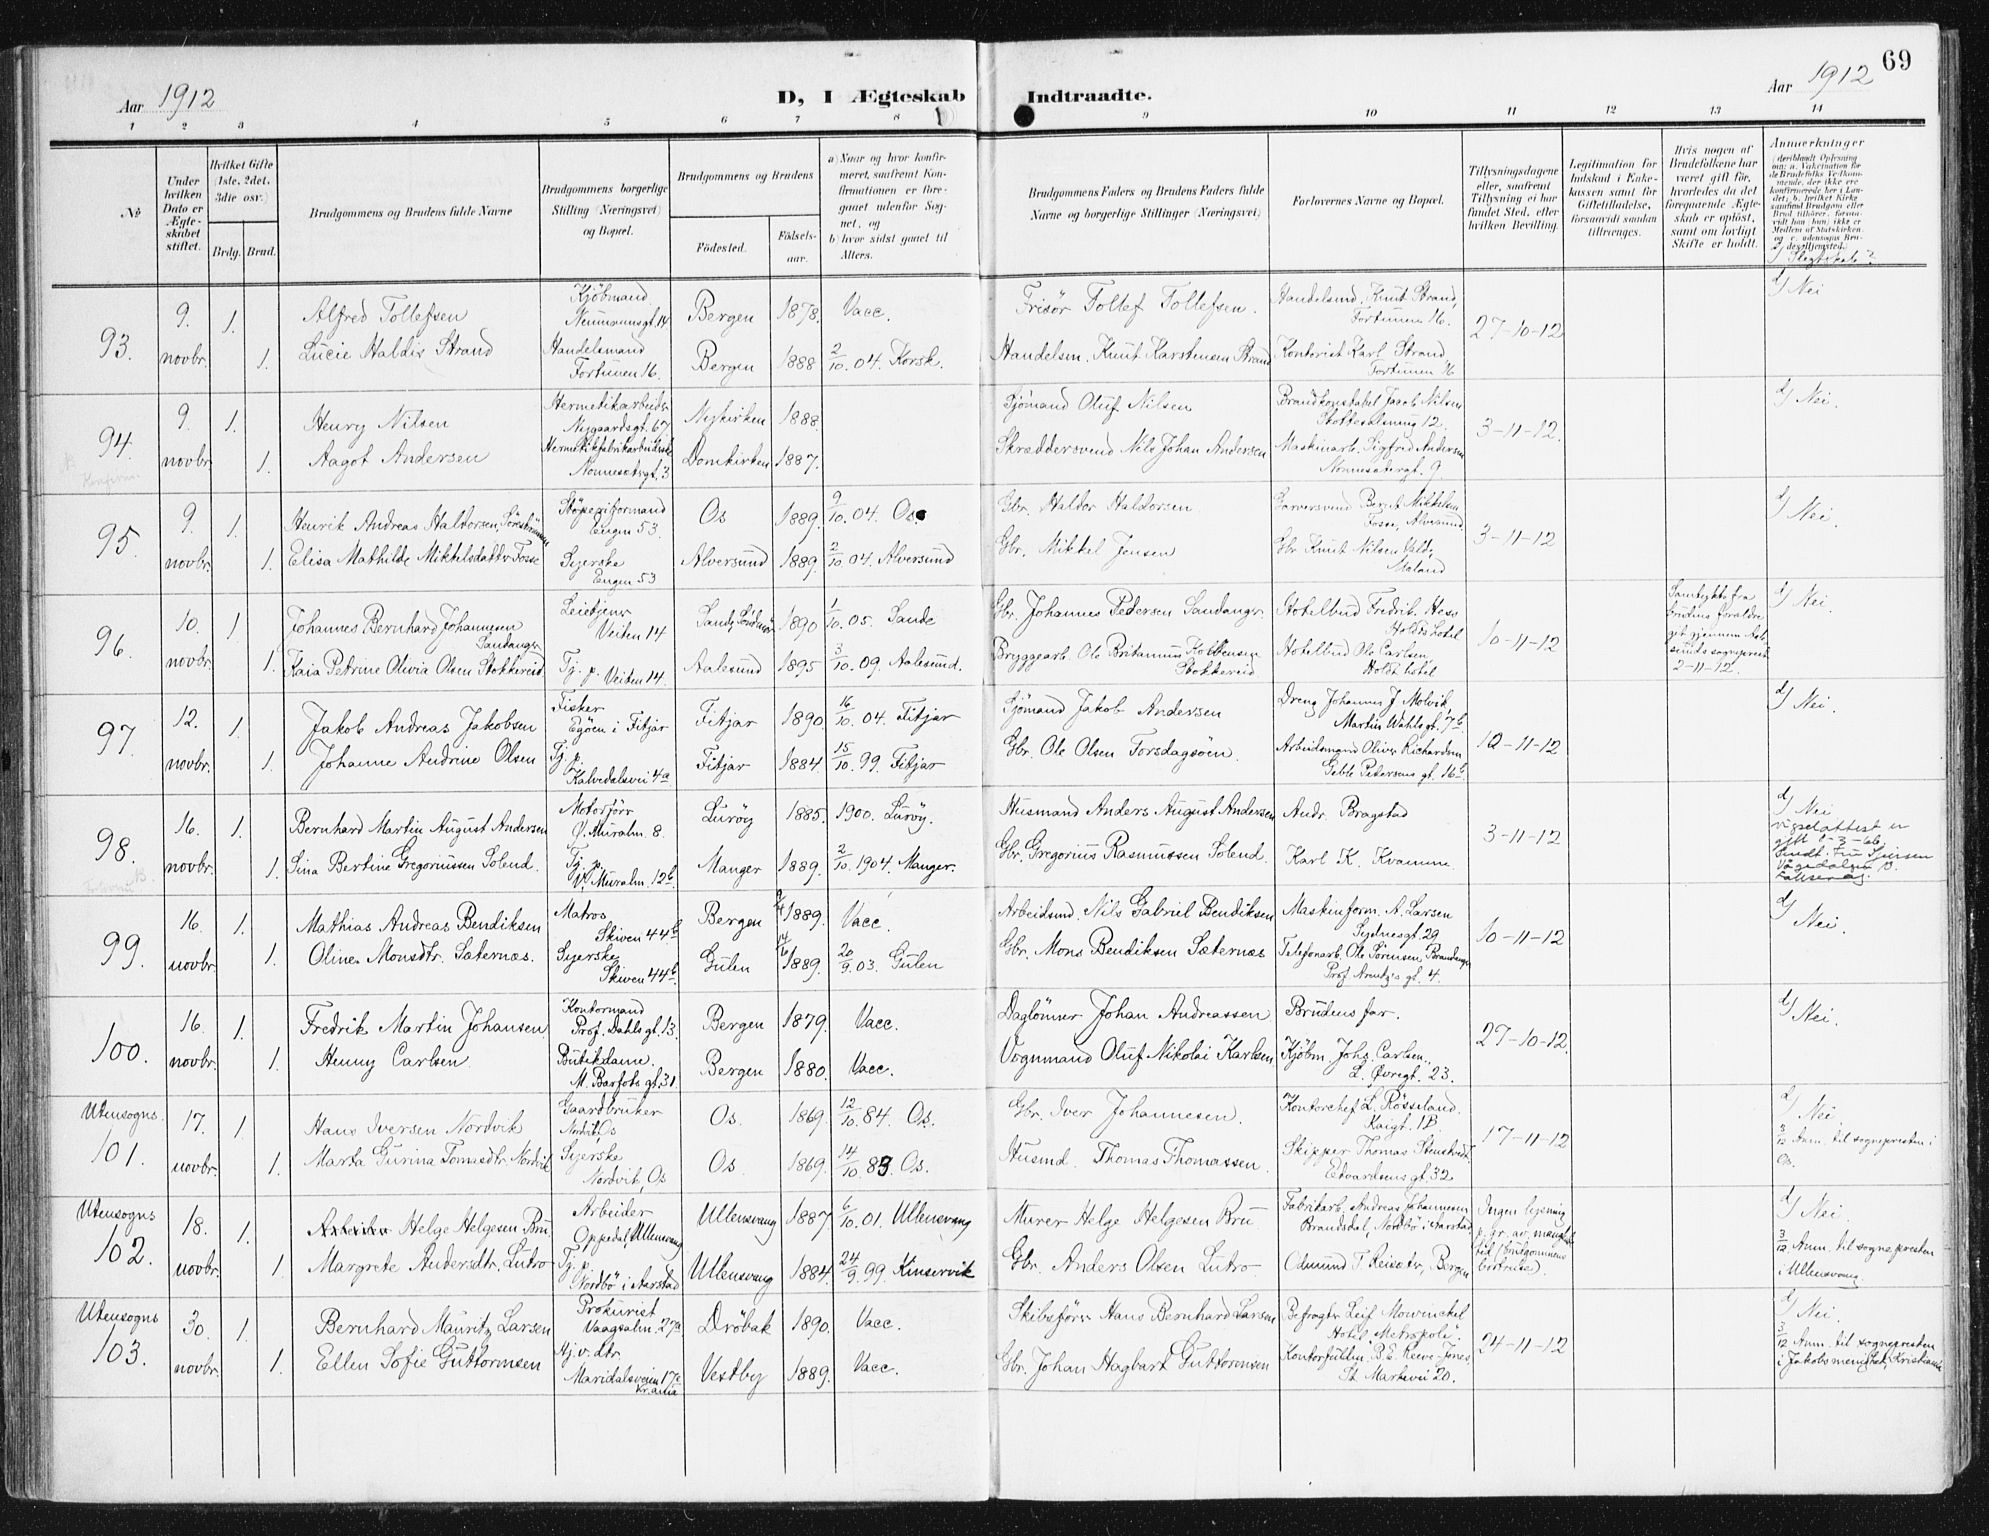 69
Aar 1912
D, I Ægteskab Indtraadte.
Aar 1912
1 2 3 4 5 6 7 8 9 10 11 12 13 14
№
Under hvilken Dato er Ægteskabet stiftet.
Hvilket Gifte (1ste, 2det, 3die osv.)
Brdg. Brud.
Brudgommens og Brudens fulde Navne
Brudgommens borgerlige Stilling (Næringsvei) og Bopæl.
Brudgommens og Brudens
Fødested.
Fødselsaar.
a) Naar og hvor konfirmeret, saafremt Konfirmationen er foregaaet udenfor Sognet, og
b) hvor sidst gaaet til Alters.
Brudgommens Faders og Brudens Faders fulde Navne og borgerlige Stillinger (Næringsvei)
Forlovernes Navne og Bopæl.
Tillysningsdagene eller, saafremt Tillysning ei har fundet Sted, efter hvilken Bevilling.
Legitimation for Indskud i Enkekassen samt for Giftetilladelse, forsaavidt saadan tiltrænges.
Hvis nogen af Brudefolkene har været gift før, hvorledes da det foregaaende Ægteskab er opløst, samt om lovligt Skifte er holdt.
Anmerkninger
d/ Slegtskab?
93. 9. novbr. 1. Alfred Tollefsen Kjöbmand Neumannsgt. 14 Bergen 1878. Vacc. Frisør Tollef Tollefsen. Handelsmd. Knut Strand, Fortunen 16. 27-10-12 d/ Nei
1. Lucie Haldis Strand Handelsmand Fortunen 16. Bergen 1888 2/10. 04. Korsk. Handelsm. Knut Karstensen Strand Kontorist Karl Strand, Fortunen 16
94. 9. novbr. 1. Henry Nilsen Hermetikarbeider Nygaardsgt. 67 Nykirken 1888. Sjömand Oluf Nilsen Brandkonstabel Jacob Nilsen 12. 3-11-12. d/ Nei.
1. Aagot Andersen Hermetikfabrikarbeiderske Nonnesætergt. 3 Domkirken 1887. Skræddersvend Nils Johan Andersen Maskinarb. Sigfred Andersen Nonnesætergt. 9.
95. 9. novbr. 1. Henrik Andreas Haldorsen Söreströnen Støperiformand Engen 53. Os 1889. 9/10. 04. Os. Gbr. Haldor Haldorsen Garversvend Bernt Mikkelsen Fosse, Alversund. 3-11-12 d/ Nei.
1. Elisa Mathilde Mikkelsdatter Fosse Syerske Engen 53 Alversund 1889. 2/10. 04. Alversund Gbr. Mikkel Jensen Gbr. Knut Nilsen
96. 10. novbr. 1. Johannes Bernhard Johannesen Sandanger Leietjener Veiten 14 Sande, Söndmör 1890 1/10. 05. Sande Gbr. Johannes Pedersen Sandanger. Hotelbud Fredrik Hess Holdts hotel 10-11-12 Samtykke fra brudens forældre get gjennem Aalesunds sogneprest 2-11-12. d/ Nei.
1. Kaia Petrine Olivia Olsen Stokkereid Tj. p. Veiten 14. Aalesund 1895 3/10. 09. Aalesund. Bryggearb. Ole Britanius Stokkereid Hotelbud Ole Carlsen Holdts hotel
97. 12. novbr. 1. Jakob Andreas Jakobsen Fisker Egöen i Fitjar Fitjar 1890. 16/10. 04. Fitjar Sjömand Jakob Andersen Dreng Johannes J. Molvik, Martin Wahls gt. 7b 10-11-12 d/ Nei.
1. Johanne Andrine Olsen Tj. p. Kalvedalsvei 4a Fitjar 1884. 15/10. 99. Fitjar Gbr. Ole Olsen Torsdagsöen. Arbeidsmand Oliver Richardsen Geble Pedersens gt. 16b
98. 16. novbr. 1. Bernhard Martin August Andersen Motorförer V. Muralm. 8. Luröy 1885. 1900. Luröy. Husmand Anders August Andersen Andr. Bragstad 3-11-12 d/ Nei
Vigselattest er
1. Sina Bertine Gregoriussen Solend. Tj. p. V. Muralm. 12b Manger 1889. 2/10. 1904. Manger. Gbr. Gregorius Rasmussen Solend. Karl K. Kvamme
99. 16. novbr. 1. Mathias Andreas Bendiksen Matros Skiven 44b Bergen 1889. Vacc. Arbeidsmd. Nils Gabriel Bendiksen Maskinform. A. Larsen Sydnesgt. 29 10-11-12 d/ Nei.
1. Oline Monsdtr. Sæternæs. Syerske Skiven 44b Gulen 1889. 20/9. 03. Gulen Gbr. Mons Bendiksen Sæternæs Telefonarb. Ole Sörensen Brandanger Prof. Arentzes gt. 4.
100. 16. novbr. 1. Fredrik Martin Johansen Kontormand Prof. Dahls gt. 13. Bergen 1879. Vacc. Daglönner Johan Andreassen Brudens far. 27-10-12. d/ Nei.
1. Henny Carlsen Butikdame M. Barfots gt. 31. Bergen 1880. Vacc. Vognmand Oluf Nikolai Karlsen Kjøbm. Johs. Carlsen, L. Øvregt. 23.
Utensogns
101. 17. novbr. 1. Hans Iversen Nordvik Gaardbruker Nordvik, Os Os. 1869. 12/10. 84. Os. Gbr. Iver Johannesen. Kontorchef L. Rösseland. Kaigt. 1B. 17-11-12 d/ Nei
3/12 Anm. til sognepresten i Os.
1. Marta Gurina Tomasdtr. Nordvik Syerske Nordvik, Os Os. 1869. 14/10. 83. Os. Husmd. Thomas Thomassen. Skipper Thomas Edvardsens gt. 32
Utensogns
102. 18. novbr. 1. Arbeider Helge Helgesen Bru Arbeider Oppedal, Ullensvang Ullensvang 1887 6/10. 01. Ullensvang Murer Helge Helgesen Bru Fabrikarb. Andreas Johannesen Brandsdal, Nordbö i Aarstad Ingen lysning p. gr. av mangl. tid / brudgommens bortreise). d/ Nei.
3/12. Anm. til sognepresten i Ullensvang.
1. Margrete Andersdtr. Lutro Tj. p. Nordbö i Aarstad Ullensvang 1884. 24/9. 99. Kinservik Gbr. Anders Olsen Lutro. Edmund T. Reisæter, Bergen
Utensogns
103. 30. novbr. 1. Bernhard Mauritz Larsen Prokurist Vaagsalm. 27a Dröbak 1890. Vacc. Skibsförer Hans Bernhard Larsen Befragter Leif Mowinckel Hotel "Metropole". 24-11-12 d/ Nei.
3/12 Anm. til sognepresten i Jakobs menighet, Kristiania
1. Ellen Sofie Guttormsen Hj.v. dtr. Maridalsveien 17c Kr.ania Vestby 1889. Vacc. Gbr. Johan Hagbart Guttormsen Kontorfuldm. B. E. Reeve-Jones St. Markevei 20.